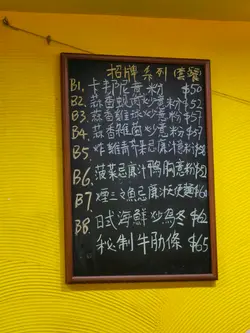 招牌系列套餐
B1. 卡邦尼意粉 $50
B2. 蒜香蜆肉炒意粉 $52
B3. 蒜香雞球意粉 $57
B4. 蒜香雜菌炒意粉 $57
B5. 炸雞 忌廉汁意粉 $52
B6. 菠菜忌廉汁鴨胸意粉 $5
B7. 煙三文魚忌廉汁扁意麵
B8. 日式海鮮炒烏冬 $62
秘制牛肋條 $65